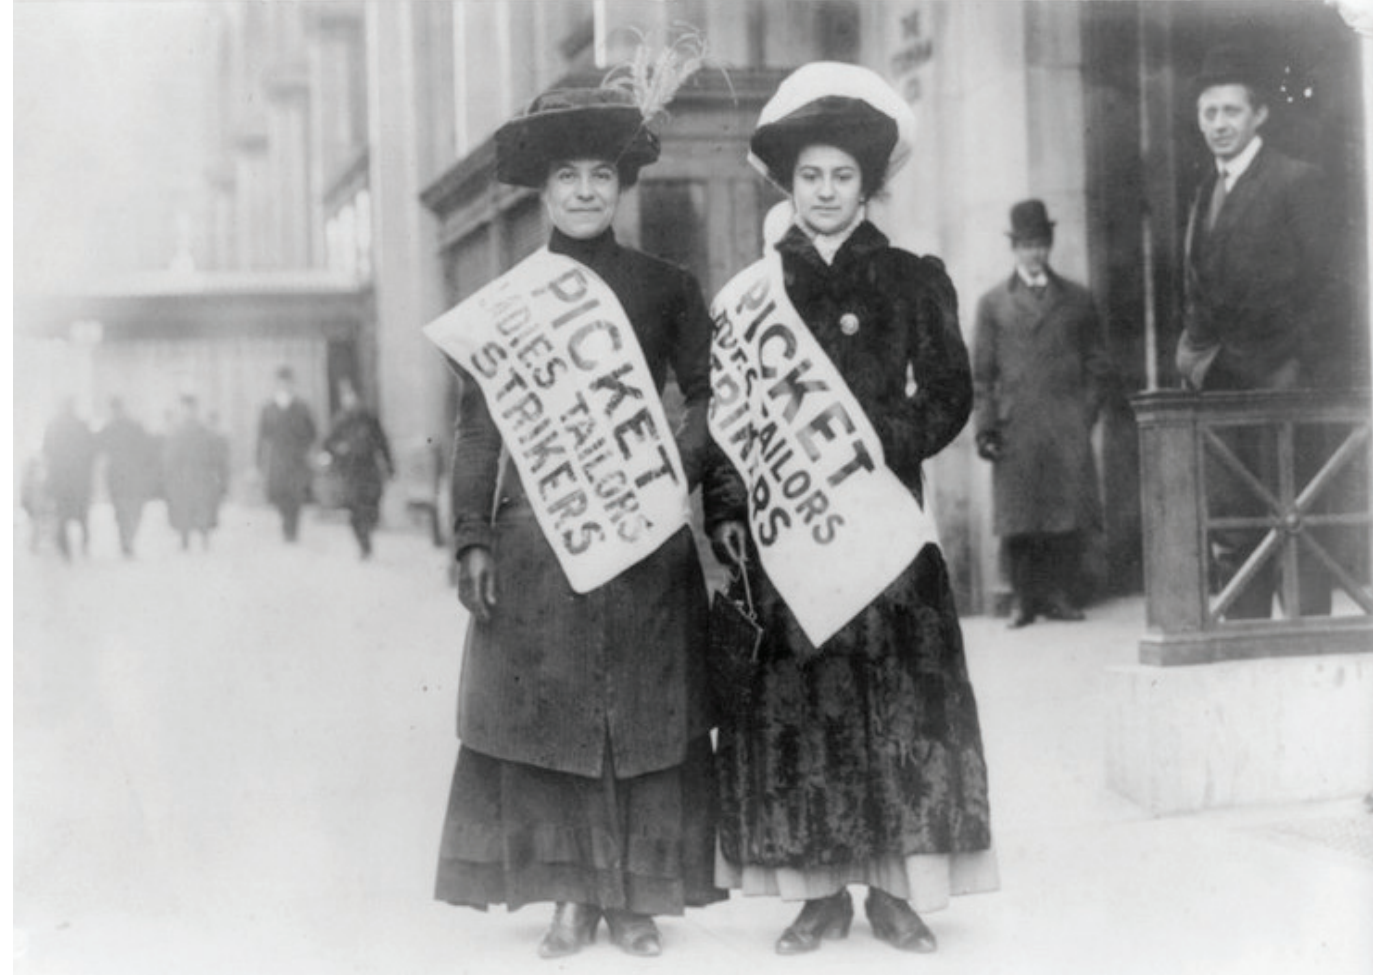 PICKET
LADIES TAILORS
STRIKERS
PICKET
LADIES TAILORS
STRIKERS